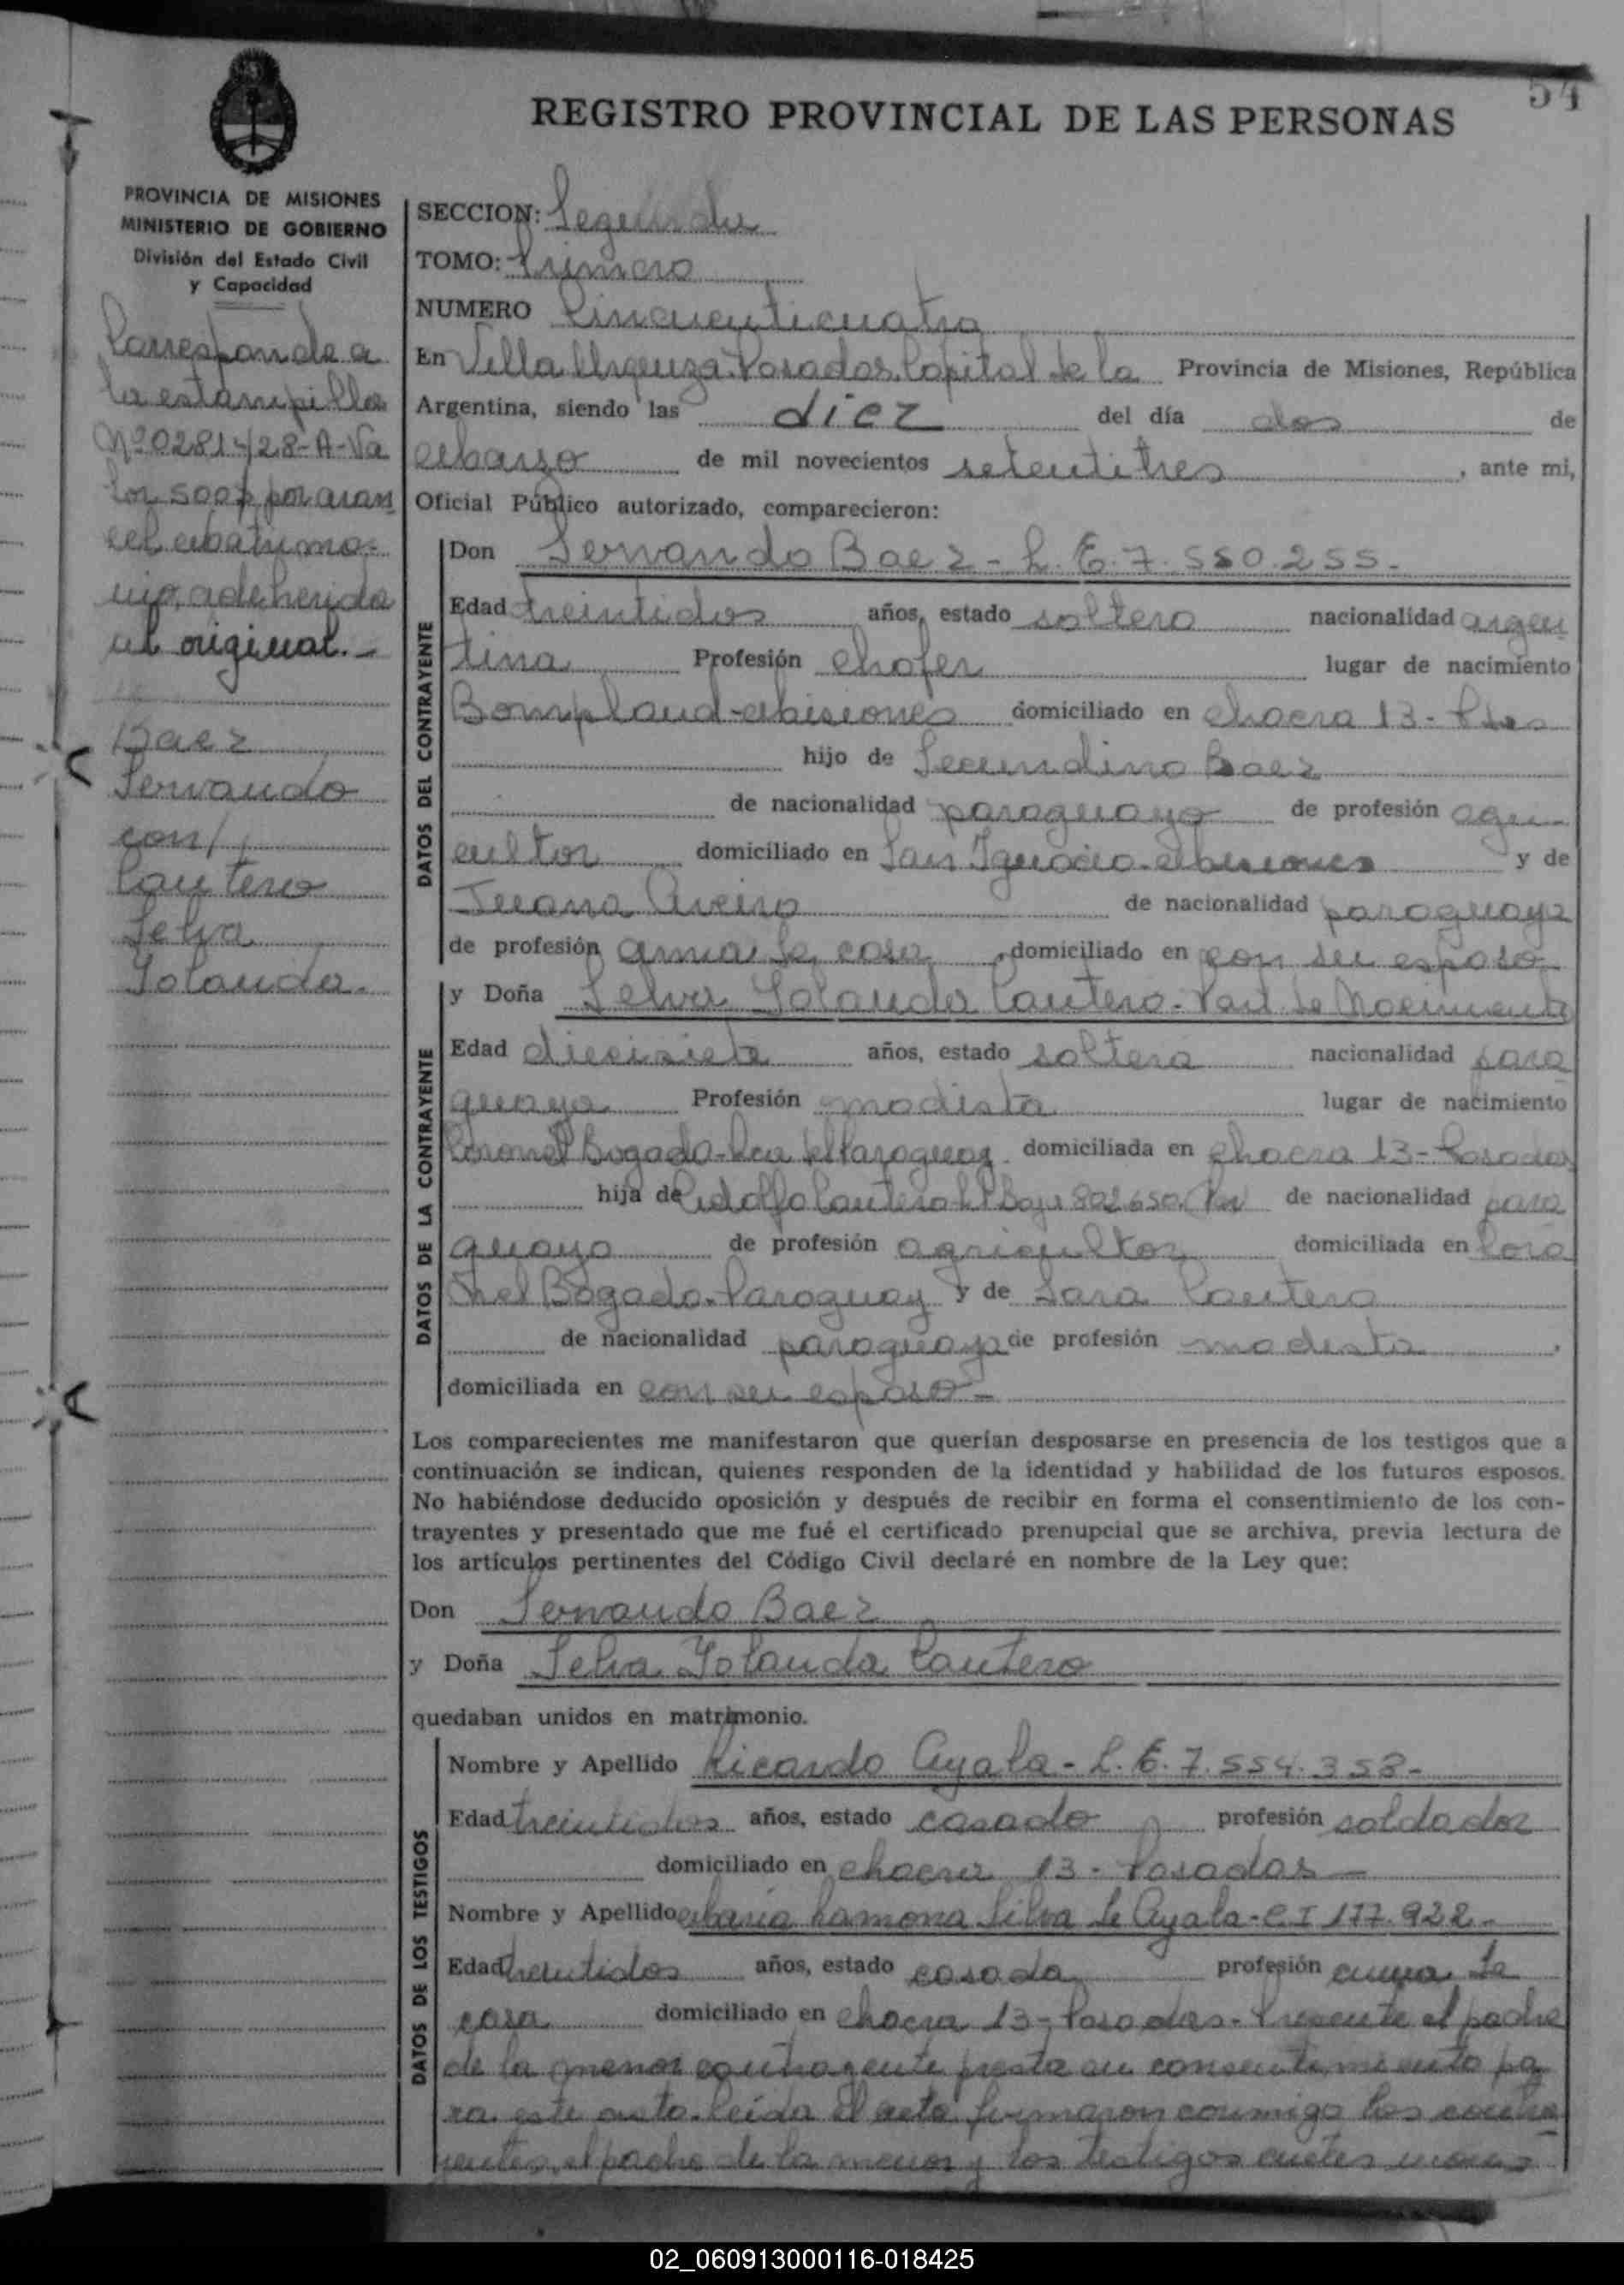 54
REGISTRO PROVINCIAL DE LAS PERSONAS
PROVINCIA DE MISIONES
MINISTERIO DE GOBIERNO
División del Estado Civil
y Capacidad
Corresponde a
la estampilla
Nº 0281428-A-Va
lor 500$ por aran
cel Matrimo-
nio, adeherida
al original.-
Baez
Servando
con/
Cantero
Selva
Yolanda.
SECCION: Segunda
TOMO: Primero
NUMERO Cincuenticuatro
En Villa Urquiza-Posadas, Capital de la Provincia de Misiones, República
Argentina, siendo las diez del día dos de
Marzo de mil novecientos setentitres, ante mi,
Oficial Público autorizado, comparecieron:
DATOS DEL CONTRAYENTE
Don Servando Baez - L.E. 7.550.255-
Edad treintidos años, estado soltero nacionalidad argen
tina Profesión chofer lugar de nacimiento
Bompland-Misiones domiciliado en chacra 13-Pdas
hijo de Secundino Baez
de nacionalidad paraguayo de profesión agri-
cultor domiciliado en San Ignacio-Misiones y de
Juana Aveiro de nacionalidad paraguaya
de profesión ama de casa, domiciliado en con su esposo
DATOS DE LA CONTRAYENTE
y Doña Selva Yolanda Cantero-Part. de Nacimiento
Edad diecisiete años, estado soltera nacionalidad para
guaya Profesión modista lugar de nacimiento
Coronel Bogado-Rca del Paraguay domiciliada en chacra 13-Posadas
hija de Adolfo Cantero de nacionalidad para
guayo de profesión agricultor domiciliada en Coro
nel Bogado-Paraguay y de Sara Cantero
de nacionalidad paraguaya de profesión modista,
domiciliada en con su esposo-
Los comparecientes me manifestaron que querían desposarse en presencia de los testigos que a
continuación se indican, quienes responden de la identidad y habilidad de los futuros esposos.
No habiéndose deducido oposición y después de recibir en forma el consentimiento de los con-
trayentes y presentado que me fué el certificado prenupcial que se archiva, previa lectura de
los artículos pertinentes del Código Civil declaré en nombre de la Ley que:
Don Servando Baez
y Doña Selva Yolanda Cantero
quedaban unidos en matrimonio.
DATOS DE LOS TESTIGOS
Nombre y Apellido Ricardo Ayala - L.E. 7.554.358-
Edad treintidos años, estado casado profesión soldador
domiciliado en chacra 13-Posadas-
Nombre y Apellido Maria Ramona Silva de Ayala-C I 177.922-
Edad treintidos años, estado casada profesión ama de
casa domiciliado en chacra 13-Posadas-Presente el padre
de la menor contrayente presta su consentimiento pa
ra este acto. Leida el acta firmaron conmigo los contra
yentes, el padre de la menor y los testigos
02_060913000116-018425